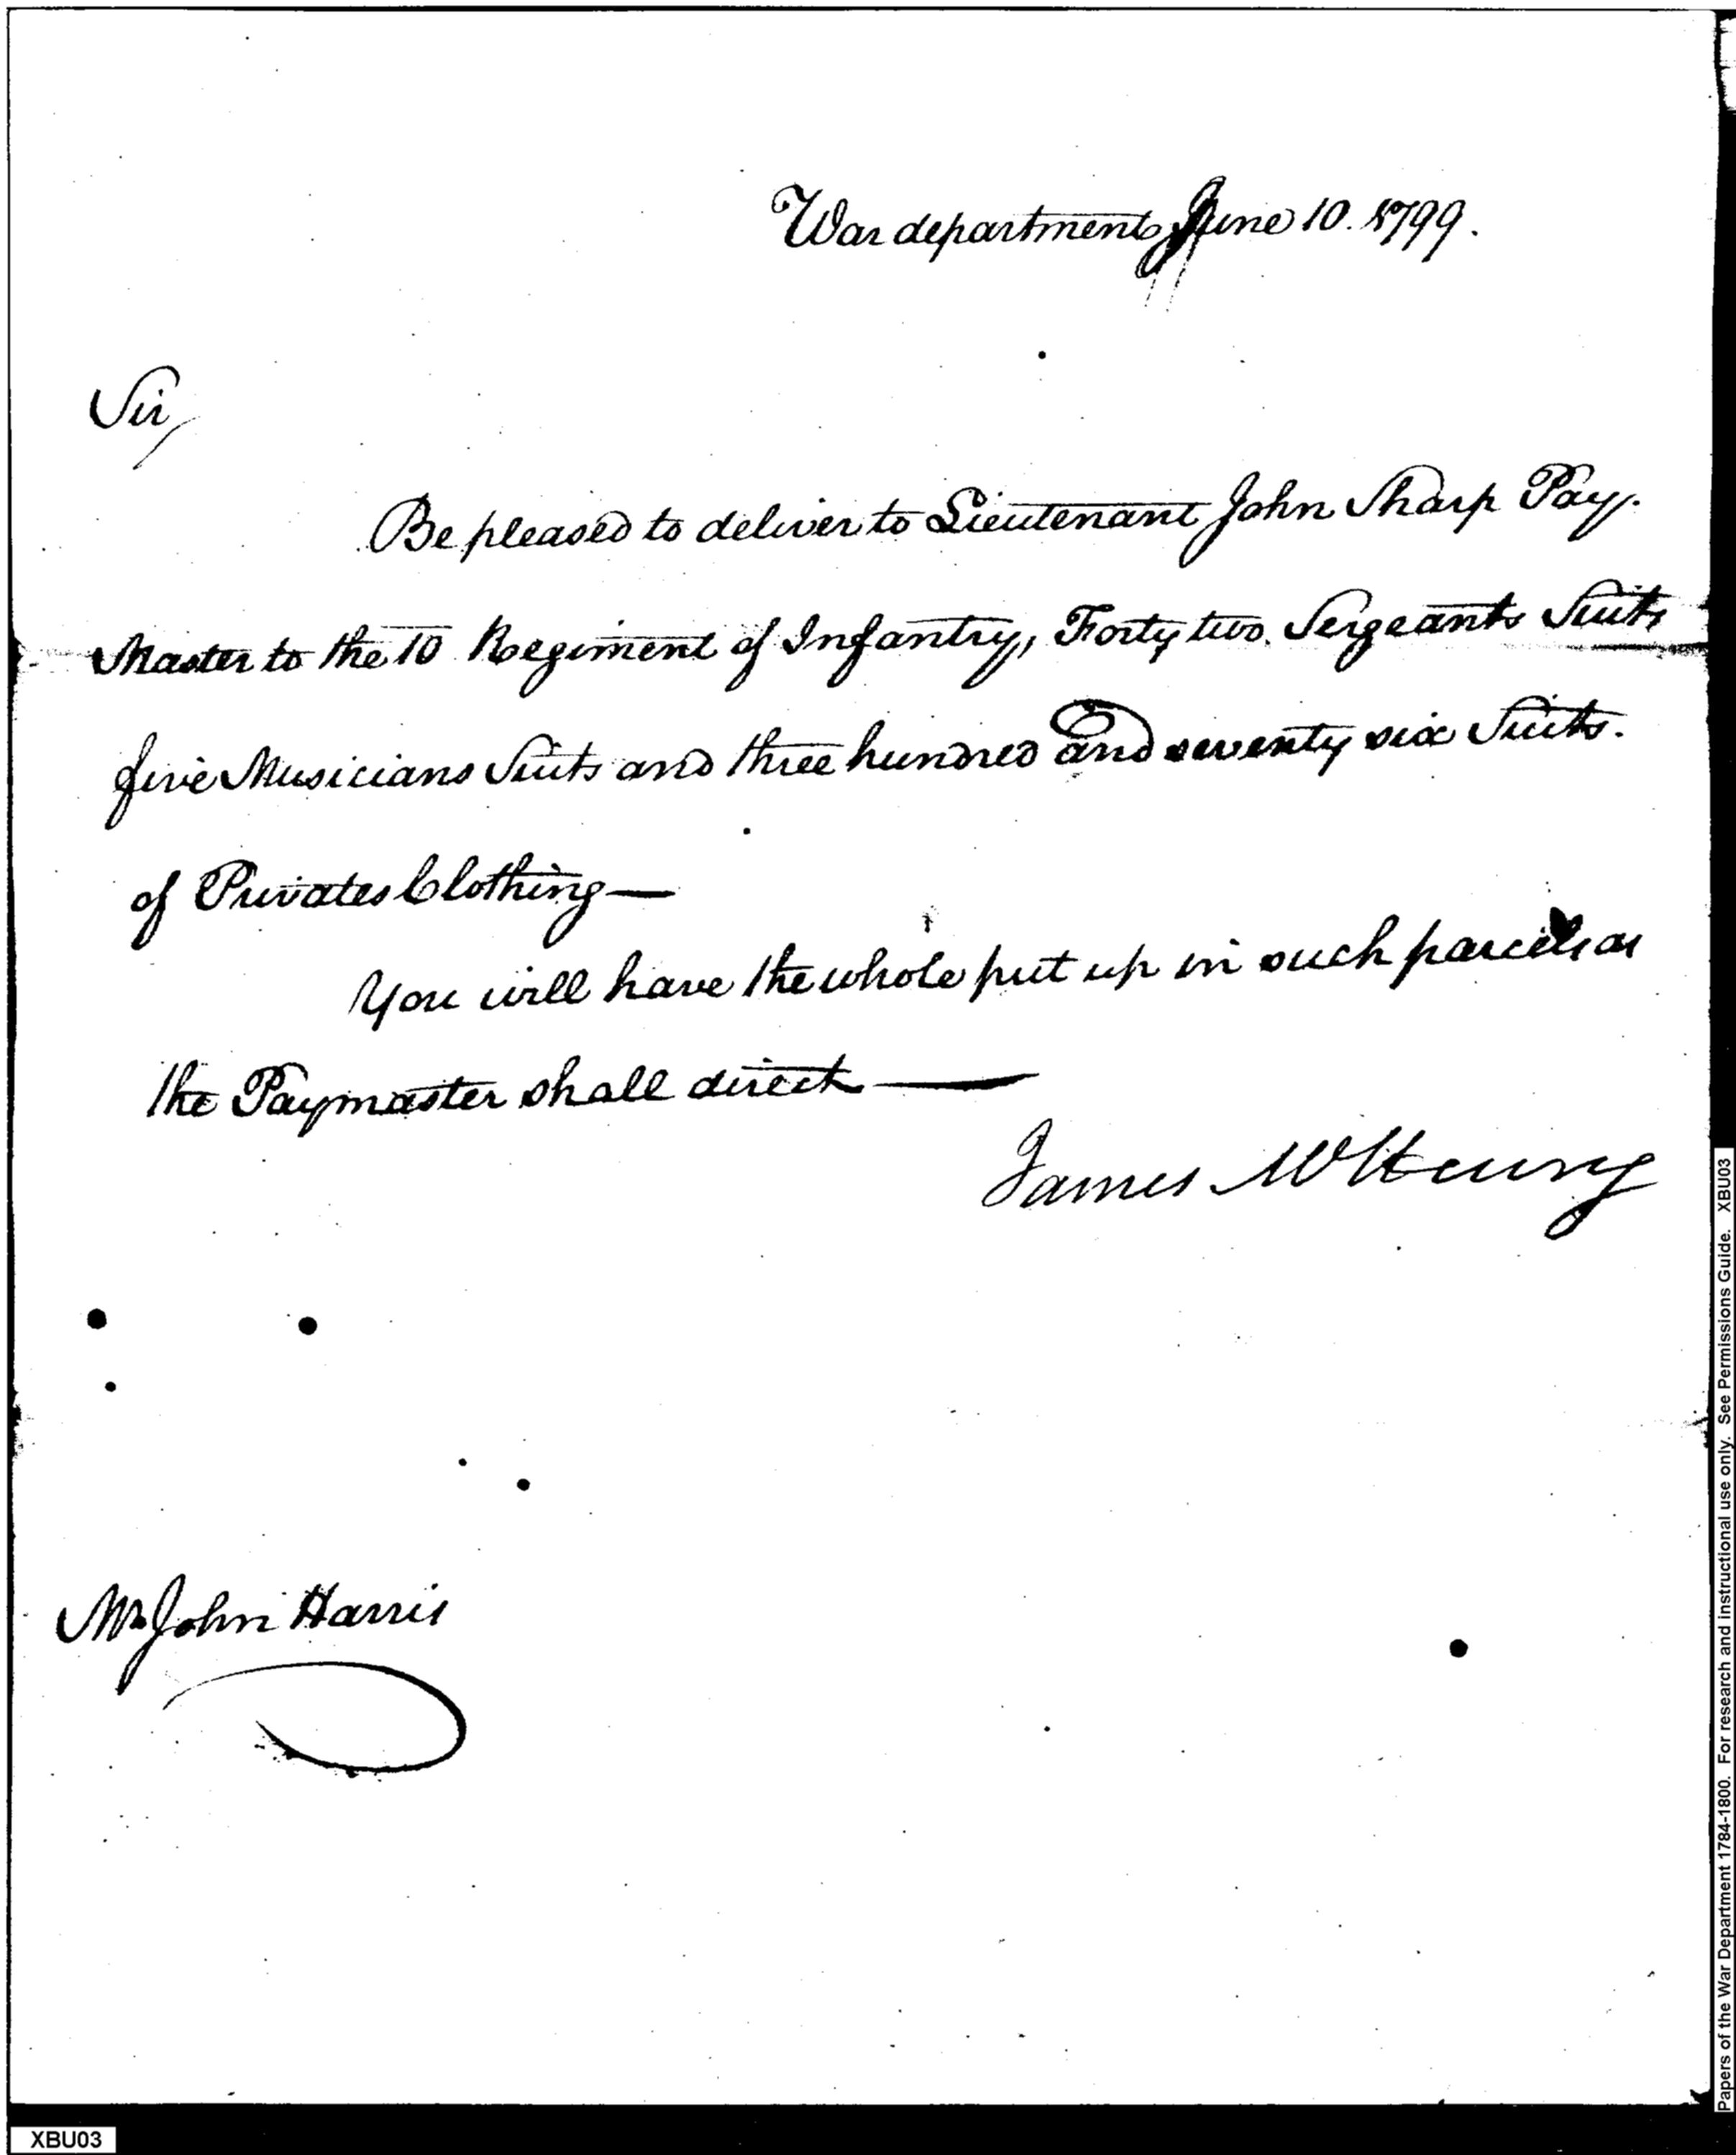 War department June 10. 1799.
Sir,
Be pleased to deliver to Lieutenant John Sharp Pay.
Master to the 10 Regiment of Infantry, Forty two Sergeants Suits
five Musicians Suits and three hundred and seventy six Suits.
of Privates Clothing—
You will have the whole put up in such parcels as
the Paymaster shall direct —
James McHenry
Mr John Harris
XBU03
Papers of the War Department 1784-1800. For research and instructional use only. See Permissions Guide. XBU03